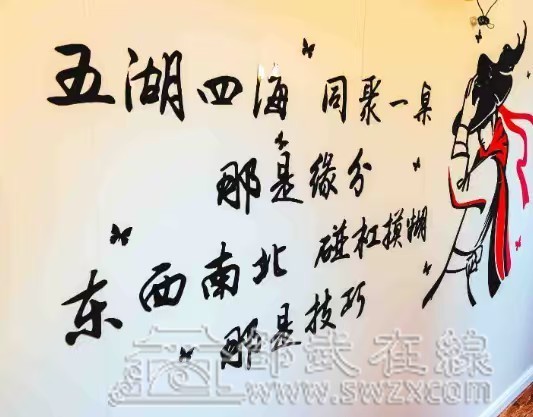 五湖四海 同聚一桌
那是缘分
东西南北 碰杠摸糊
那是技巧
邵武在線
www.swzx.com